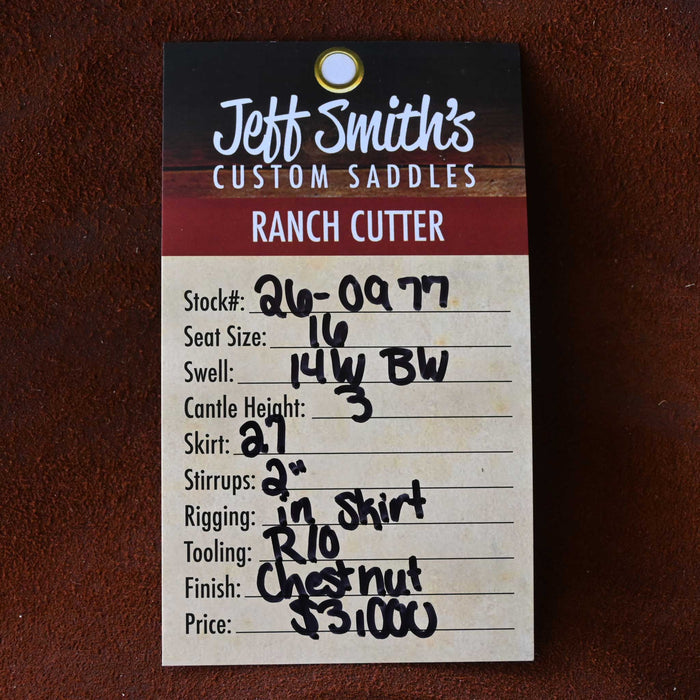 Jeff Smith's
CUSTOM SADDLES
RANCH CUTTER
Stock#: 26-0977
Seat Size: 16
Swell: 14W BW
Cantle Height: 3
Skirt: 27
Stirrups: 2"
Rigging: in Skirt
Tooling: R/O
Finish: Chestnut
Price: $3,000